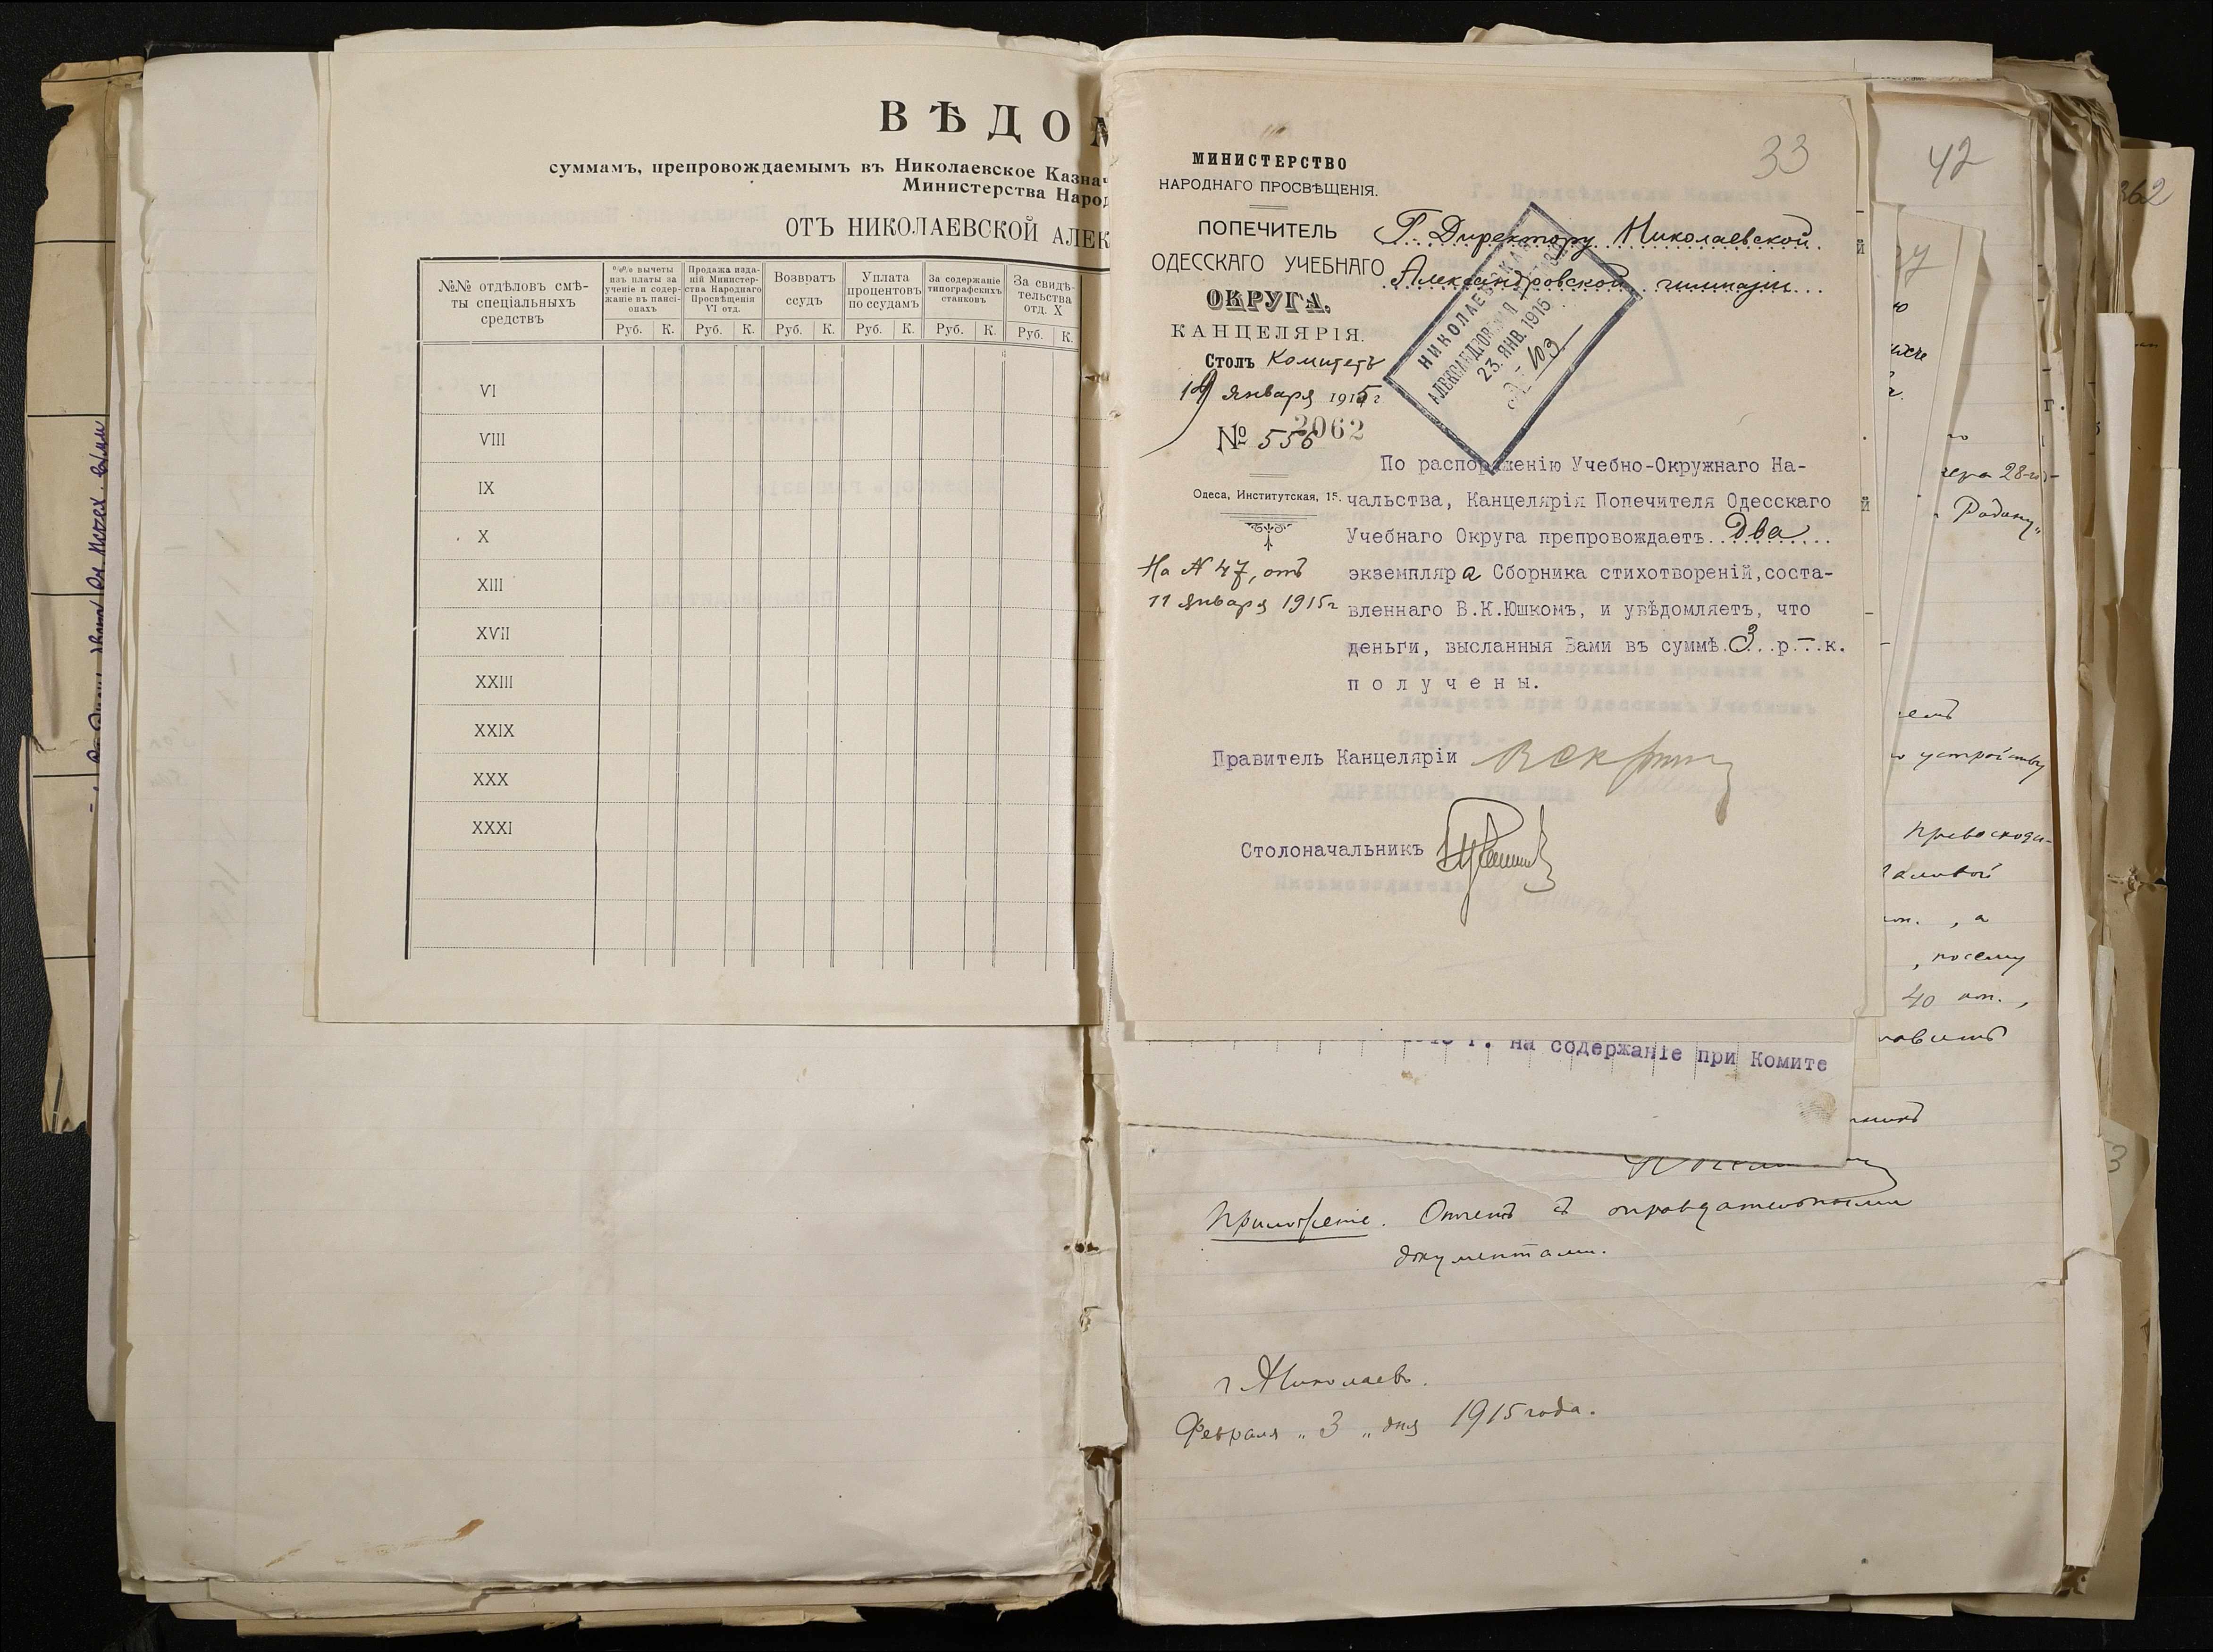 ВѢДОМ
суммамъ, препровождаемымъ въ Николаевское Казнач
Министерства Народ
ОТЪ НИКОЛАЕВСКОЙ АЛЕК
№№ отдѣловъ смѣ-
ты спеціальныхъ
средствъ
%% вычеты
изъ платы за
ученіе и содер-
жаніе въ пансі-
онахъ
Руб. К.
Продажа изда-
ній Министер-
ства Народнаго
Просвѣщенія
VI отд.
Руб. К.
Возвратъ
ссудъ
Руб. К.
Уплата
процентовъ
по ссудамъ
Руб. К.
За содержаніе
типографскихъ
станковъ
Руб. К.
За свидѣ-
тельства
отд. X
Руб. К.
VI
VIII
IX
X
XIII
XVII
XXIII
XXIX
XXX
XXXI
33
МИНИСТЕРСТВО
НАРОДНАГО ПРОСВѢЩЕНІЯ.
ПОПЕЧИТЕЛЬ
ОДЕССКАГО УЧЕБНАГО
ОКРУГА.
КАНЦЕЛЯРІЯ.
Столъ Комитетъ
19 Января 1915 г
№ 556
2062
Одеса, Институтская, 15.
На № 47, отъ
11 января 1915 г
Г. Директору Николаевской
Александровской гимназіи
НИКОЛАЕВСКАЯ
АЛЕКСАНДРОВСКАЯ
23. ЯНВ. 1915
103
По распоряженію Учебно-Окружнаго На-
чальства, Канцелярія Попечителя Одесскаго
Учебнаго Округа препровождаетъ Два
экземпляра Сборника стихотвореній,соста-
вленнаго В.К.Юшкомъ, и увѣдомляетъ, что
деньги, высланныя Вами въ суммѣ 3 р — к.
получены.
Правитель Канцеляріи
Столоначальникъ
г. на содержаніе при Комите
Приложеніе. Отчетъ съ оправдательными
документами.
г. Николаевъ.
Февраля „ 3 „ дня 1915 года.
42
362
28-го
Родину„
устройству
Превосходи-
, а
, посему
40 коп.,
3